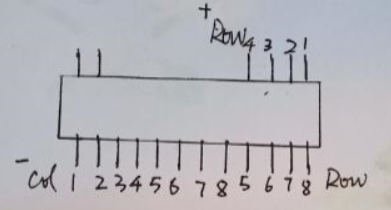 +
Row 4 3 2 1
- Col 1 2 3 4 5 6 7 8 5 6 7 8 Row